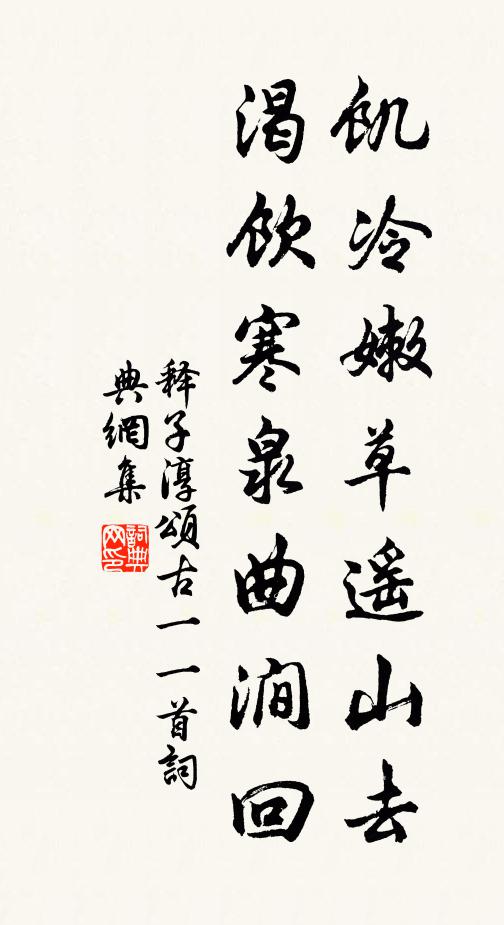 飢冷嫩草遥山去
渴飲寒泉曲澗回
释子淳頌古一一首詞
典網集
詞典
网印